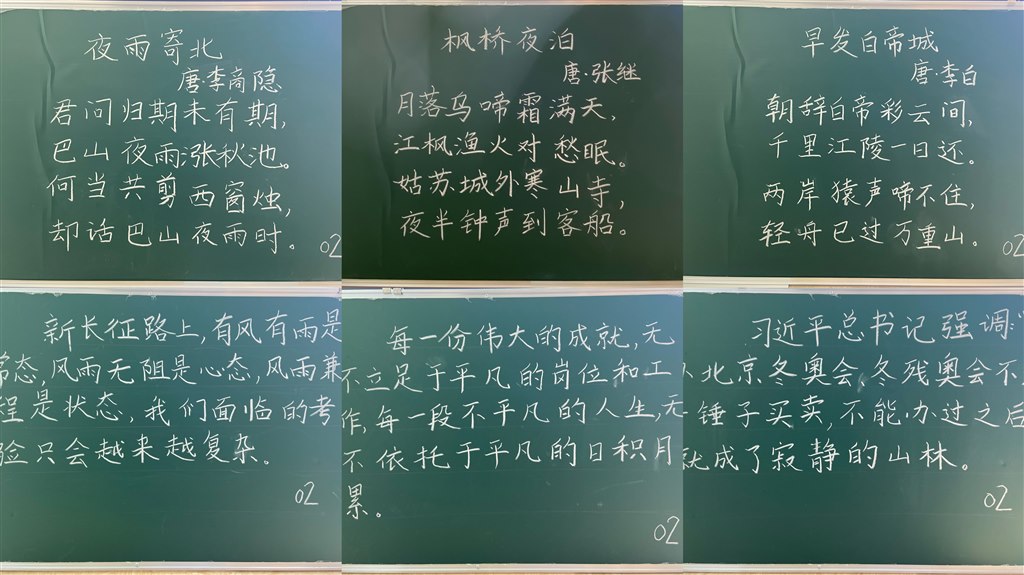 夜雨寄北
唐·李商隐
君问归期未有期,
巴山夜雨涨秋池。
何当共剪西窗烛,
却话巴山夜雨时。
02
枫桥夜泊
唐·张继
月落乌啼霜满天,
江枫渔火对愁眠。
姑苏城外寒山寺,
夜半钟声到客船。
早发白帝城
唐·李白
朝辞白帝彩云间,
千里江陵一日还。
两岸猿声啼不住,
轻舟已过万重山。
02
新长征路上,有风有雨是
常态,风雨无阻是心态,风雨兼
程是状态,我们面临的考
验只会越来越复杂。
02
每一份伟大的成就,无
不立足于平凡的岗位和工
作,每一段不平凡的人生,无
不依托于平凡的日积月
累。
02
习近平总书记强调:"
北京冬奥会、冬残奥会不
锤子买卖,不能办过之后
就成了寂静的山林。
02